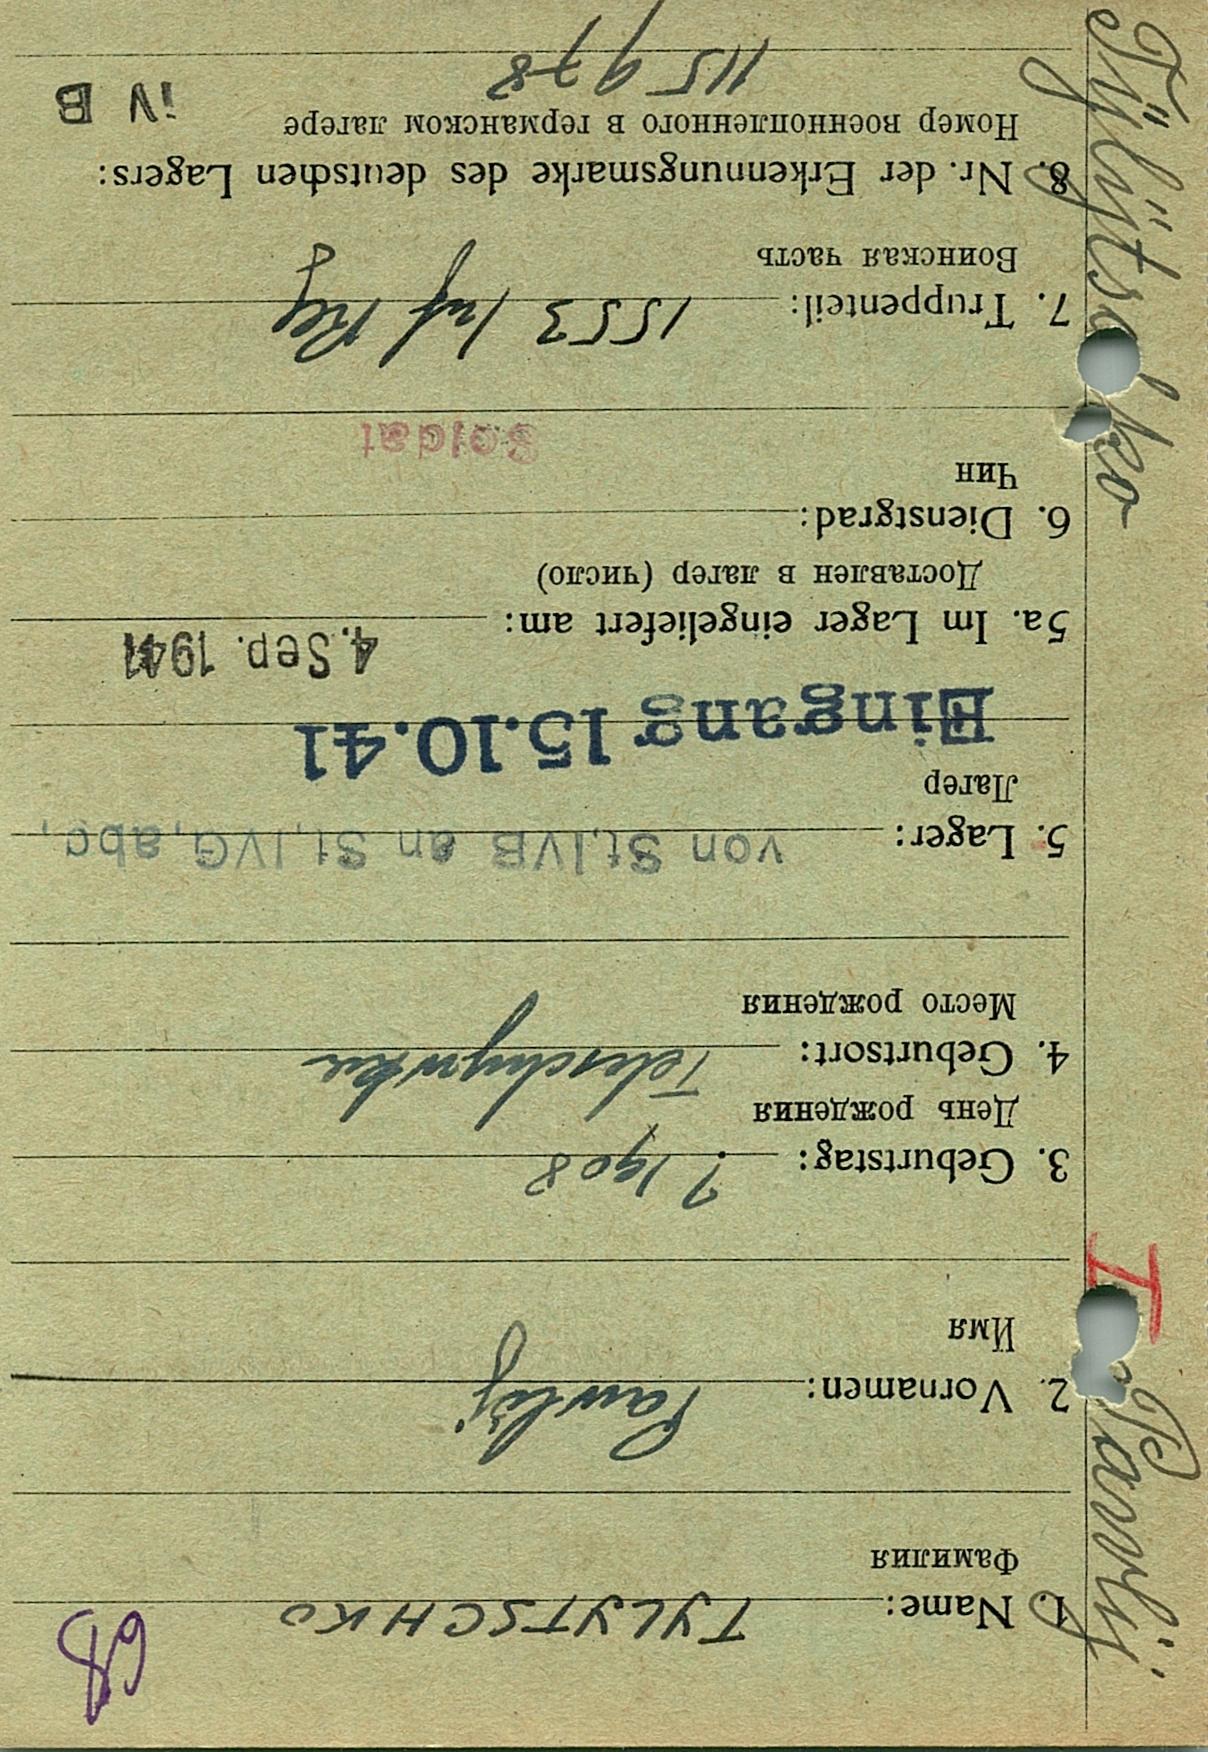 68
1. Name: TYLYTSCHKO
Фамилия
2. Vornamen: Pawlij
Имя
3. Geburtstag: ? 1908
День рождения
4. Geburtsort:
Место рождения
5. Lager: von St,IVB an St,IVG, abg,
Лагер
Eingang 15.10.41
5a. Im Lager eingeliefert am: 4. Sep. 1941
Доставлен в лагер (число)
6. Dienstgrad:
Чин
Soldat
7. Truppenteil: 1553 Inf Reg
Воинская часть
8. Nr. der Erkennungsmarke des deutschen Lagers:
Номер военнопленного в германском лагере
115978
iV B
Tÿlÿtschko
I
Pawlij